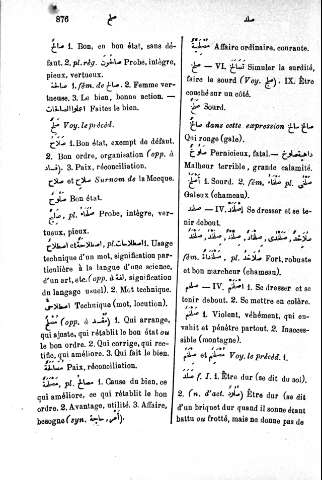 876
صلح
صلد
صَالِحٌ 1. Bon, en bon état, sans dé-
faut. 2. pl. rég. صَالِحُونَ Probe, intègre,
pieux, vertueux.
صَالِحَةٌ 1. fém. de صَالِحٌ. 2. Femme ver-
tueuse. 3. Le bien, bonne action. —
Faites le bien.
صَلِيحٌ Voy. le précéd.
صَلَاحٌ 1. Bon état, exempt de défaut.
2. Bon ordre, organisation (opp. à
فساد). 3. Paix, réconciliation.
صَلَاحِ et صلاح Surnom de la Mecque.
صُلُوحٌ Bon état.
صَلِيحٌ, pl. صُلَحَاءُ Probe, intègre, ver-
tueux, pieux.
اِصْطِلَاحٌ pl. اصطلاحات Usage
technique d'un mot, signification par-
ticulière à la langue d'une science,
d'un art, etc. (opp. à لغة, signification
du langage usuel). 2. Mot technique.
اِصْطِلَاحِيٌّ Technique (mot, locution).
مُصْلِحٌ (opp. à مفسد) 1. Qui arrange,
qui ajuste, qui rétablit le bon état ou
le bon ordre. 2. Qui corrige, qui rec-
tifie, qui améliore. 3. Qui fait le bien.
Paix, réconciliation.
مَصْلَحَةٌ, pl. مَصَالِحُ 1. Cause du bien, ce
qui améliore, ce qui rétablit le bon
ordre. 2. Avantage, utilité. 3. Affaire,
besogne (syn. امر, حاجة).
Affaire ordinaire, courante.
— VI. تَصَالَخَ Simuler la surdité,
faire le sourd (Voy. صلج). IX. Être
couché sur un côté.
Sourd.
صَالِخٌ dans cette expression سَالِخٌ صَالِخٌ
Qui ronge (gale).
Pernicieux, fatal. —
Malheur terrible, grande calamité.
أَصْلَخُ 1. Sourd. 2. fém. صَلْخَاءُ pl. صُلْخٌ
Galeux (chameau).
— IV. Se dresser et se te-
nir debout.
fém. ة, pl. Fort, robuste
et bon marcheur (chameau).
— IV. Se dresser et se
tenir debout. 2. Se mettre en colère.
1. Violent, véhément, qui en-
vahit et pénètre partout. 2. Inacces-
sible (montagne).
et Voy. le précéd. 1.
صَلَدَ f. I. 1. Être dur (se dit du sol).
2. (n. d'act. صُلُودٌ) Être dur (se dit
d'un briquet dur quand il sonne étant
battu ou frotté, mais ne donne pas de